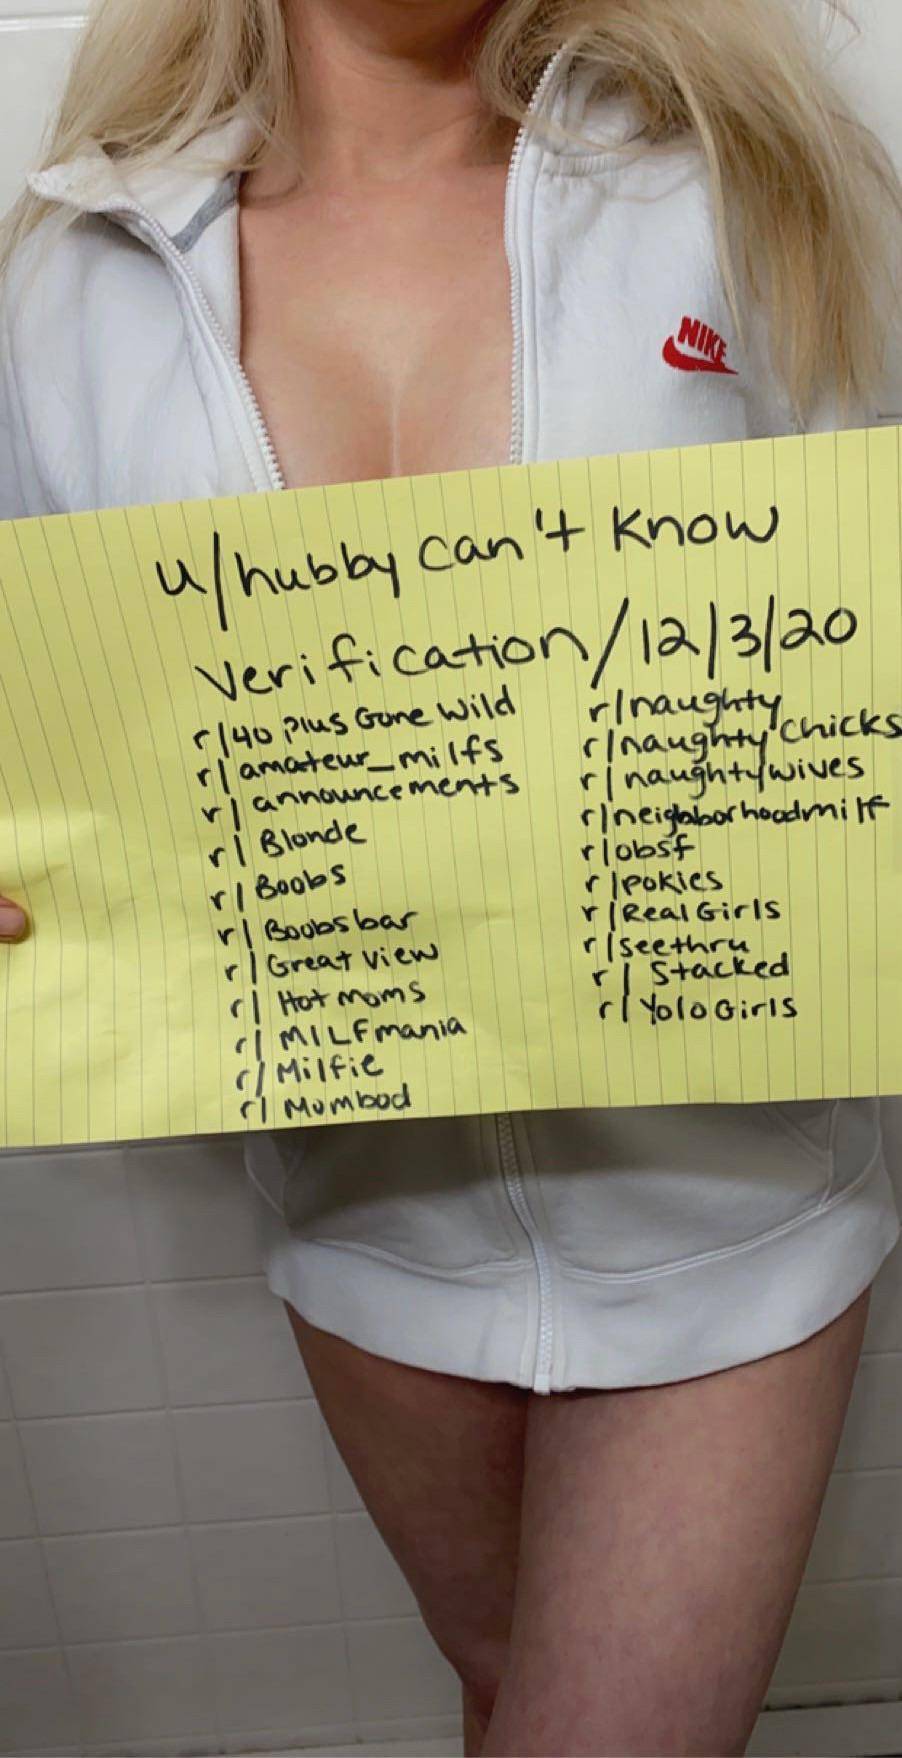 NIKE
u/hubby can't know
Verification/12/3/20
r/40 plus Gone Wild
r/amateur_milfs
r/announcements
r/Blonde
r/Boobs
r/Boobsbar
r/Great view
r/Hot moms
r/MILFmania
r/Milfie
r/Mombod
r/naughty
r/naughty chicks
r/naughtywives
r/neighborhoodmilf
r/obsf
r/pokies
r/RealGirls
r/seethru
r/Stacked
r/YoloGirls